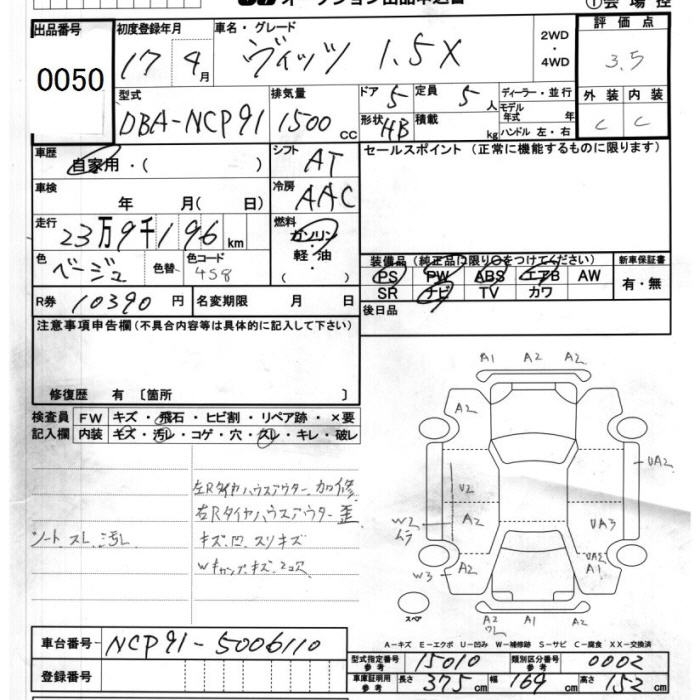 オークション出品申込書 ①会場控
出品番号 0050
初度登録年月 17 4月
車名・グレード ヴィッツ 1.5X
2WD・4WD
評価点 3.5
型式 DBA-NCP91
排気量 1500cc
ドア 5 定員 5人
形状 HB 積載 kg
ディーラー・並行
モデル年式 年
ハンドル 左・右
外装 C 内装 C
車歴 自家用・( )
シフト AT
セールスポイント (正常に機能するものに限ります)
車検 年 月( 日)
冷房 AAC
走行 23万9千196km
燃料 ガソリン・軽油・( )
色 ベージュ 色替 色コード 4S8
装備品(純正品は限り○をつけてください) 新車保証書
PS PW ABS エアB AW 有・無
SR ナビ TV カワ
R券 10390円 名変期限 月 日
後日品
注意事項申告欄(不具合内容等は具体的に記入して下さい)
修復歴 有〔箇所 〕
検査員 FW キズ・飛石・ヒビ割・リペア跡・×要
記入欄 内装 キズ・汚レ・コゲ・穴・スレ・キレ・破レ
A1 A2 A2
A2
UA2
左Rタイヤハウスアウター加修
U2
右Rタイヤハウスアウター歪
A2 UA3
W2 ムラ
シート スレ 汚レ キズ 凹 スリキズ
UA2
A1
W3 A2
スペア
A2 A1 A2
ワレ
A-キズ E-エクボ U-凹み W-補修跡 S-サビ C-腐食 XX-交換済
車台番号 NCP91-5006110
型式指定番号 参考 15010 類別区分番号 参考 0002
登録番号
車庫証明用 参考 長さ 375cm 幅 169cm 高さ 152cm